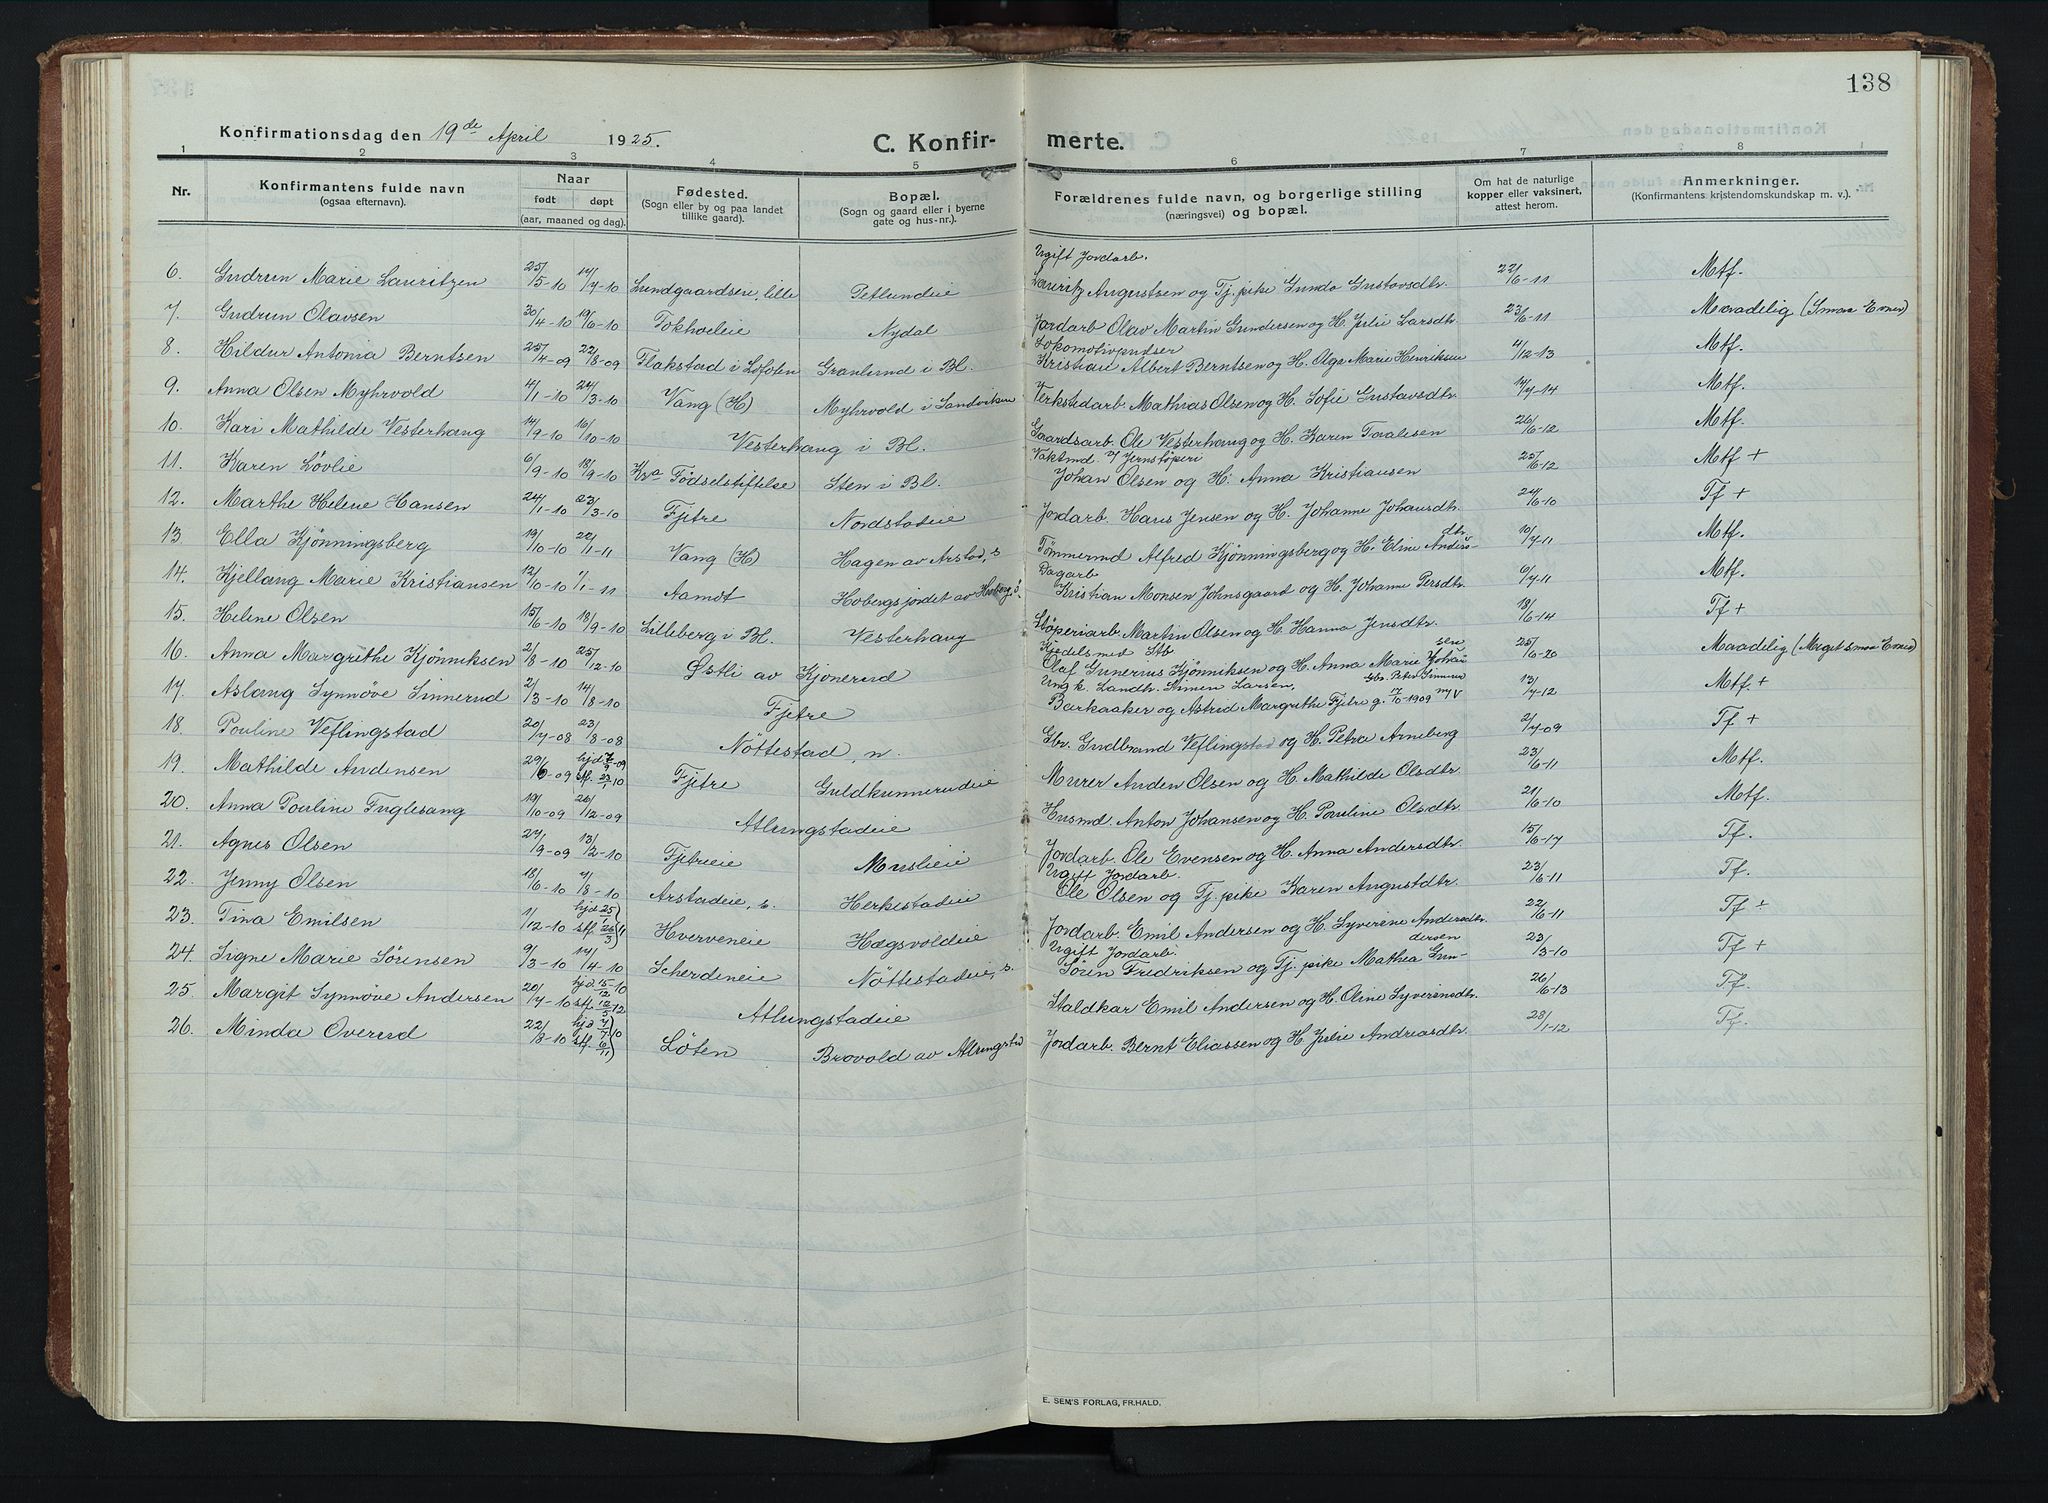 138
Konfirmationsdag den 19de April 1925.
C. Konfirmerte.
1 2 3 4 5 6 7 8
Nr.
Konfirmantens fulde navn
(ogsaa efternavn).
Naar
født døpt
(aar, maaned og dag).
Fødested.
(Sogn eller by og paa landet
tillike gaard).
Bopæl.
(Sogn og gaard eller i byerne
gate og hus-nr.).
Forældrenes fulde navn, og borgerlige stilling
(næringsvei) og bopæl.
Om hat de naturlige
kopper eller vaksinert,
attest herom.
Anmerkninger.
(Konfirmantens kristendomskundskap m. v.).
6. Gudrun Marie Lauritzen 25/5-10 17/7-10 Lundgaardseie, lille Petlundeie Ugift Jordarb. Lauritz Augustsen og Tj. pike Gunda Gustavsdtr. 22/6-11 Mtf.
7. Gudrun Olavsen 30/4-10 19/6-10 Tokholeie Nydal Jordarb Olav Martin Gundersen og H. Julie Larsdtr. 23/6-11 Maadelig (Smaa Evner)
8. Hildur Antonia Berntsen 25/4-09 22/8-09 Flakstad i Lofoten Granlund i Bl. Lokomotivpudser Kristian Albert Berntsen og H. Olga Marie Henriksen 4/12-13 Mtf.
9. Anna Olsen Myhrvold 4/1-10 24/3-10 Vang (H) Myhrvold i Sandviken Verkstedarb. Mathias Olsen og H. Sofie Gustavsdtr. 14/7-14 Mtf.
10. Kari Mathilde Vesterhaug 14/9-10 16/10-10 Vesterhaug i Bl. Gaardsarb. Ole Vesterhaug og H. Karen Toralesen 26/6-12 Mtf.
11. Karen Løvlie 6/9-10 18/9-10 Kra Fødselstiftelse Sten i Bl. Vaktmd. v Jernstøperi Johan Olsen og H. Anna Kristiansen 25/6-12 Mtf +
12. Marthe Helene Hansen 24/1-10 23/3-10 Fjetre Nordstadeie Jordarb. Hans Jensen og H. Johanne Johansdtr. 24/6-10 Tf +
13. Ella Kjønningsberg 19/10-10 22/1-11 Vang (H) Hagen av Arstad, s Tømmermd Alfred Kjønningsberg og H. Eline Andersdtr. 10/7-11 Mtf.
14. Kjellaug Marie Kristiansen 12/10-10 1/1-11 Aamot Hobergsjordet av Hoberg, ø. Dagarb Kristian Monsen Johnsgaard og H. Johanne Persdtr. 6/7-11 Mtf.
15. Helene Olsen 15/6-10 18/9-10 Lilleberg i Bl. Vesterhaug Støperiarb. Martin Olsen og H. Hanna Jensdtr. 18/6-14 Tf +
16. Anna Margrethe Kjønniksen 2/8-10 25/12-10 Østli av Kjonerud Kjedelsmed Stb Olaf Gunerius Kjønniksen og H. Anna Marie Johansen 25/6-20 Maadelig (Meget smaa Evner)
17. Aslaug Synnøve Sinnerud 2/3-10 14/8-10 Fjetre Ungk. Landhr. Simen Larsen, Barkaaker og Astrid Margrethe Fjetre g. 17/10-1909 m/ Gbr. Peter Sinnerud 13/7-12 Mtf +
18. Pouline Veflingstad 20/7-08 23/8-08 Nøttestad, n. Gbr. Gudbrand Veflingstad og H. Petra Arneberg 2/7-09 Tf +
19. Mathilde Andensen 29/6-09 hjd 7/9-09 stf. 23/1 10 Fjetre Guldkunnerudeie Murer Anden Olsen og H. Mathilde Olsdtr. 23/6-11 Mtf.
20. Anna Pouline Fuglesang 19/10-09 26/12-09 Atlungstadeie Husmd. Anton Johansen og H. Pouline Olsdtr. 21/6-10 Mtf.
21. Agnes Olsen 27/9-09 13/2-10 Fjetreie Muslieie Jordarb. Ole Evensen og H. Anna Andersdtr. 15/6-17 Tf.
22. Jenny Olsen 18/6-10 7/8-10 Arstadeie, s. Herkestadeie Ugift Jordarb. Ole Olsen og Tj. pike Karen Augustdtr. 23/6-11 Tf.
23. Tina Emilsen 1/12-10 hjd 25/1 stf. 26/3 11 Hverveneie Hægsvoldeie Jordarb. Emil Andersen og H. Syverine Andersdtr. 22/6-11 Tf +
24. Signe Marie Sørensen 9/3-10 17/4-10 Scherdeneie Nøttestadeie, s. Ugift Jordarb. Søren Fredriksen og Tj. pike Mathea Gundersen 23/3-10 Tf +
25. Margit Synnøve Andersen 20/7-10 hjd 15/12-10 stf. 12/5-12 Atlungstadeie Staldkar Emil Andersen og H. Oline Syverinsdtr. 26/6-13 Tf.
26. Minda Overud 22/8-10 hjd 7/7 stf. 6/11 10 Løten Brovold av Atlungstad Jordarb. Bernt Eliassen og H Julie Andreasdtr. 28/1-12 Tf.
E. SEM'S FORLAG, FR.HALD.